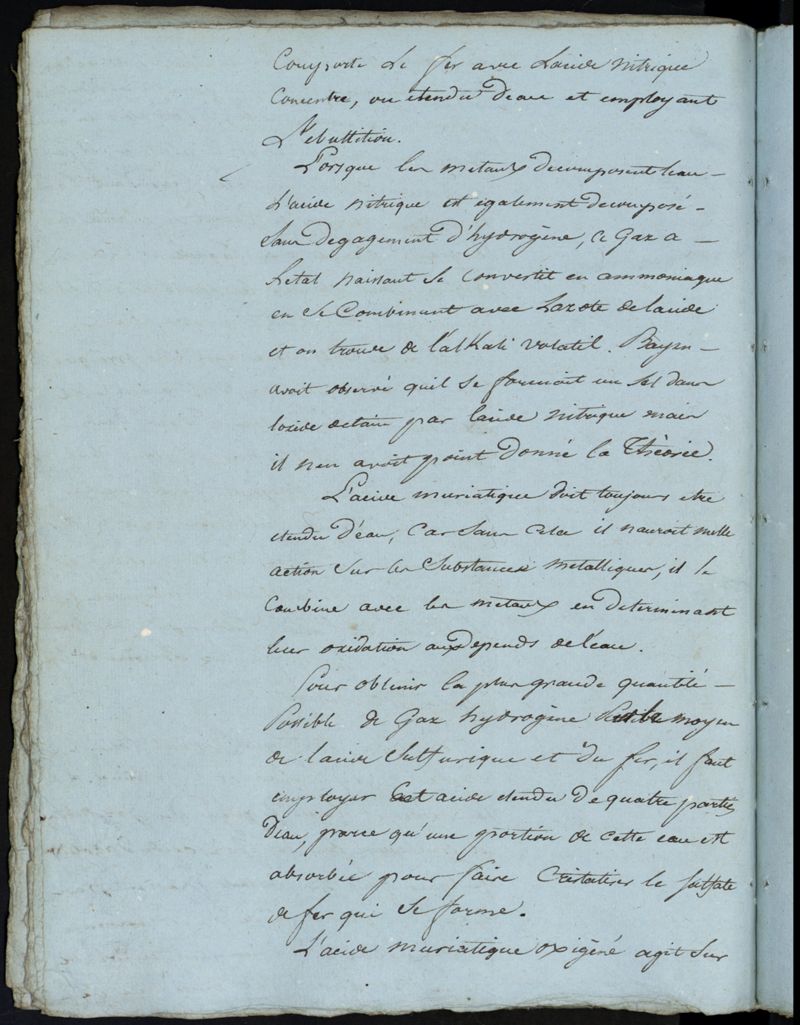 Comporte le fer avec Lacide nitrique
Concentré, ou etendu D'eau et employant
L'ebullition.
Lorsque les metaux decomposent leau -
L'acide nitrique est également decomposé -
Sans degagement d'hydrogène, ce Gaz a -
Letat naissant se Convertit en ammoniaque
en se Combinant avec Lazote de lacide
et on trouve de l'alKali volatil. Bayen -
avoit observé quil se formoit un sel dans
loxide detain par lacide nitrique mais
il nen avoit point Donné la Théorie.
L'acide muriatique doit toujours etre
etendu D'eau, Car Sans Cela il nauroit nulle
action sur les Substances metalliques, il se
Combine avec les metaux en Determinant
leur oxidation aux depends de l'eau.
Pour obtenir la plus grande quantité -
Possible de Gaz hydrogène moyen
de lacide Sulfurique et du fer, il faut
employer Cet acide etendu De quatre parties
D'eau, parce qu'une portion de cette eau est
absorbée pour faire Cristaliser le sulfate
de fer qui se forme.
L'acide muriatique oxigéné agit sur